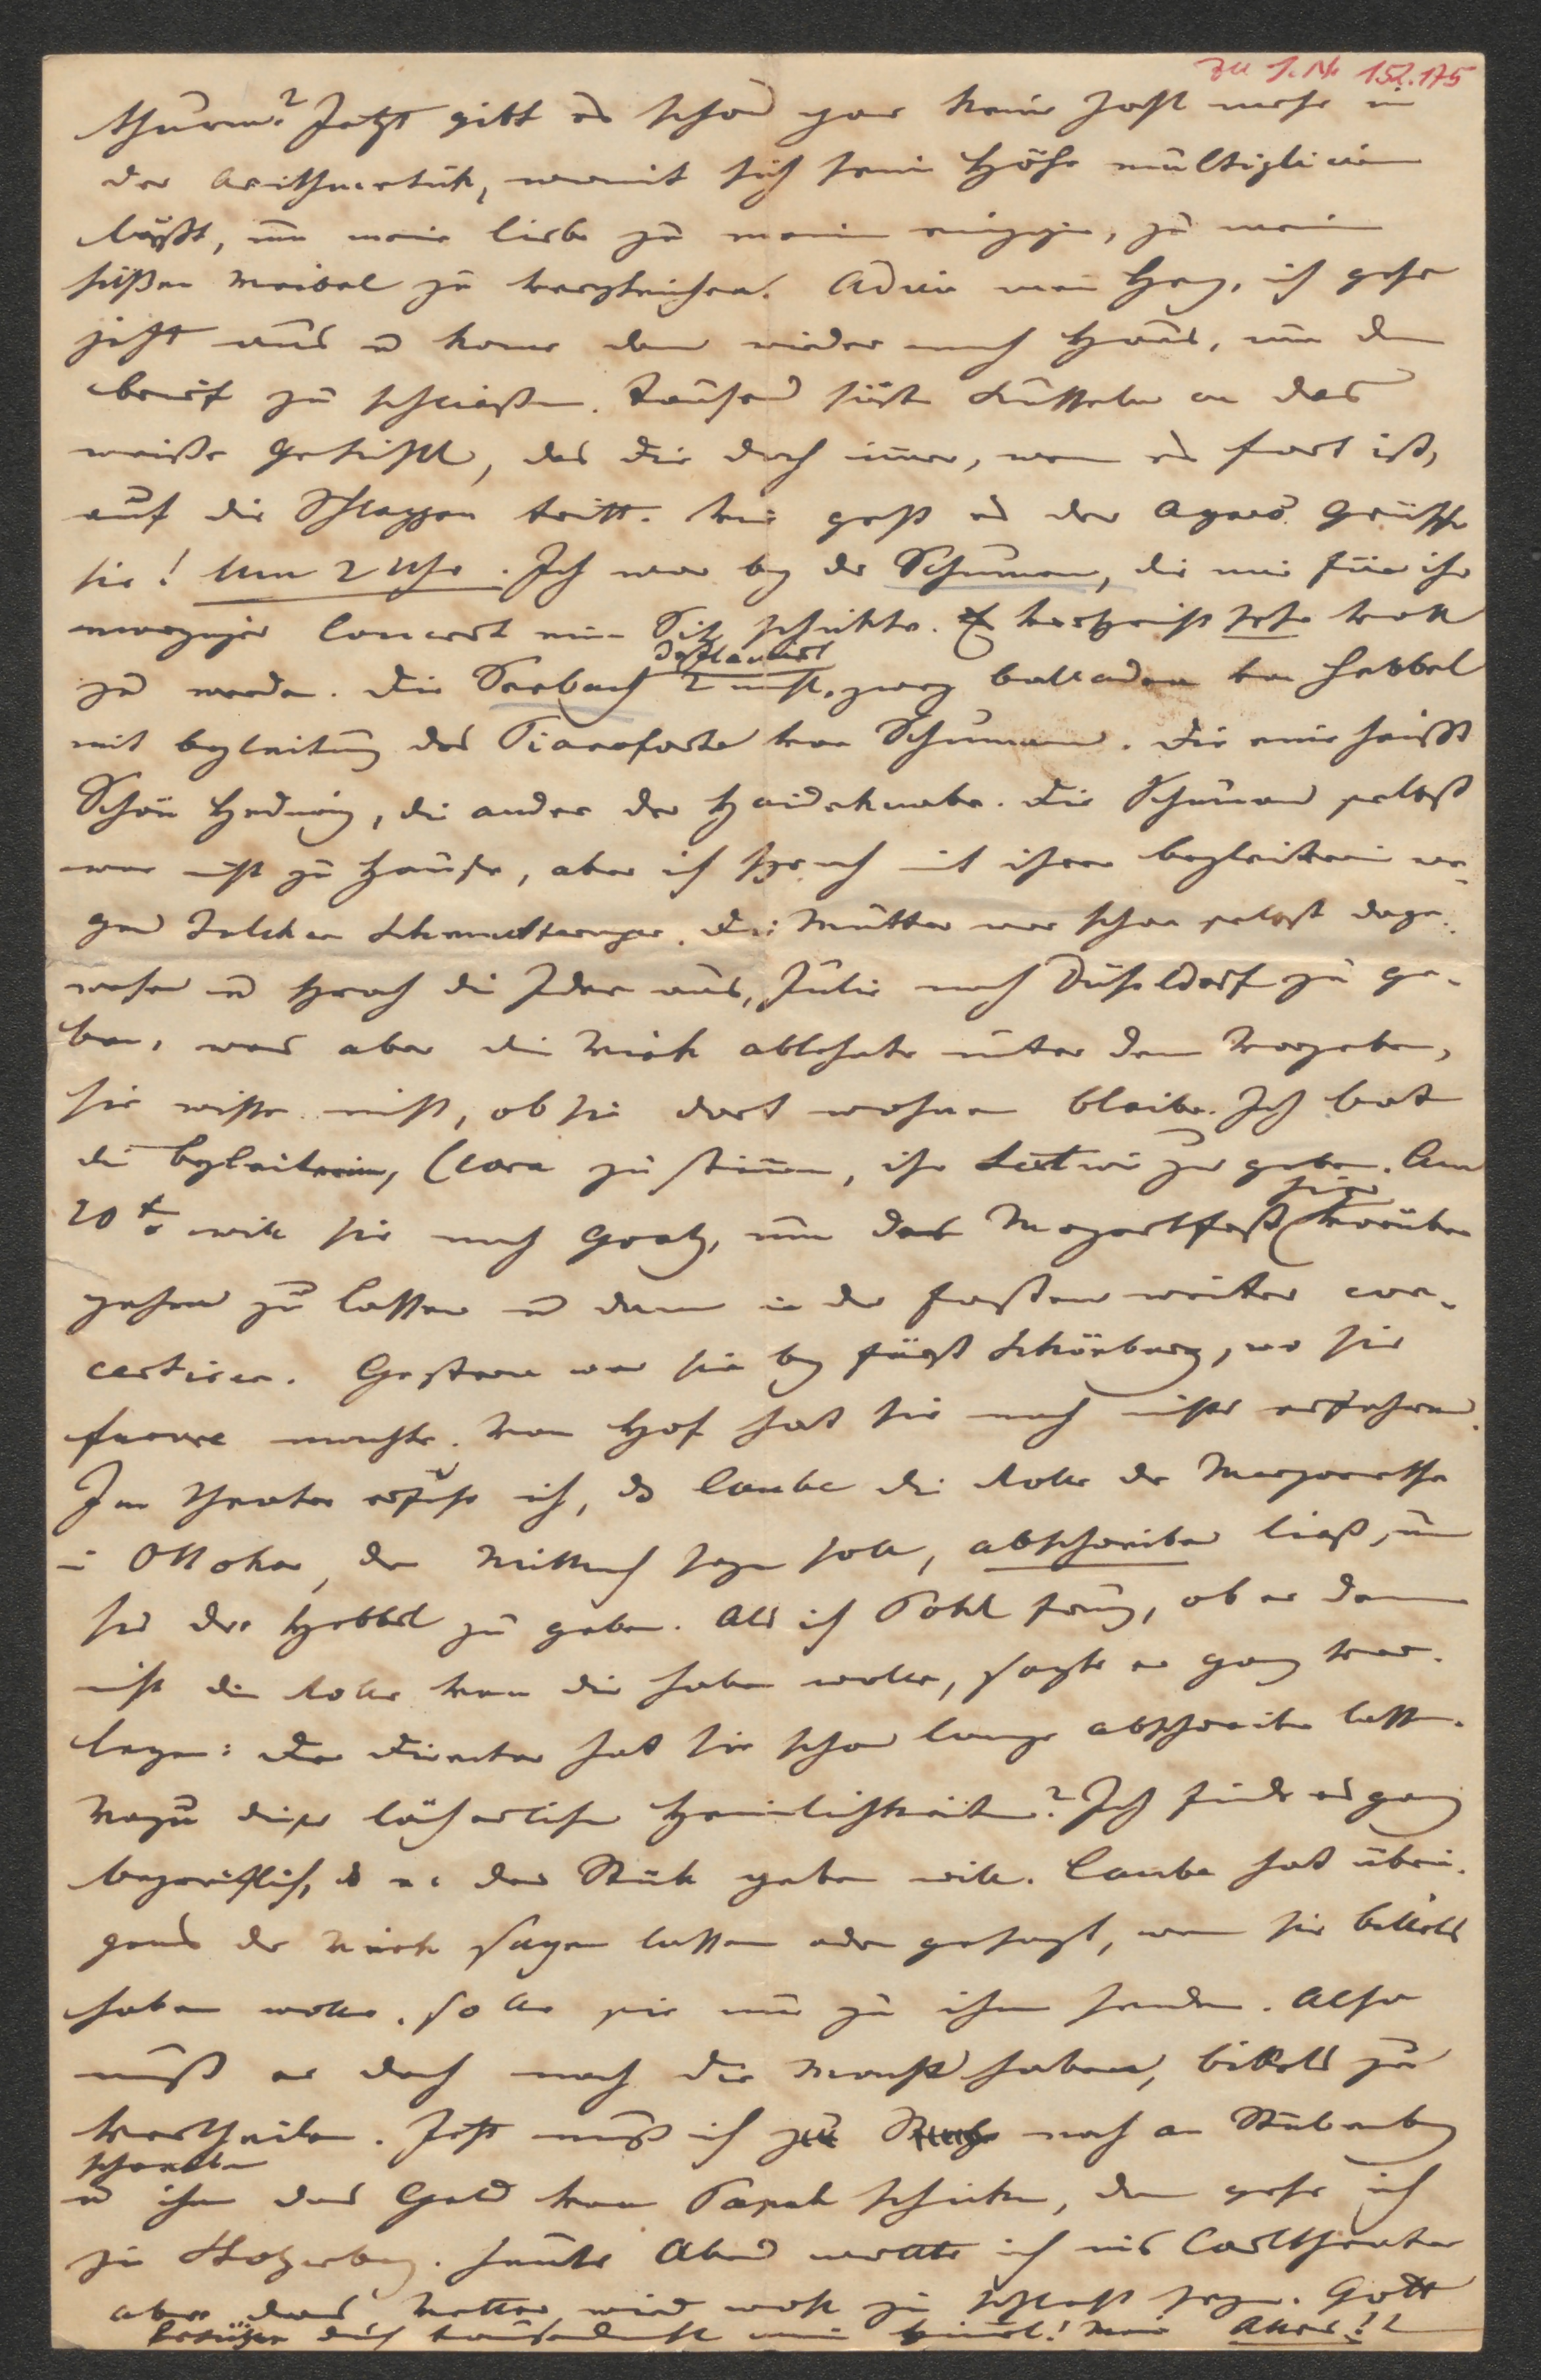 zu I. N. 152.175
thurm? Jetzt gibt es schon gar keine Zahl mehr in
der Arithmetik, womit sich seine Höhe multipliciren
läßt, um meine Liebe zu meinem einzigen, zu meinem
süßen Weibel zu vergleichen. Adieu mein Herz, ich gehe
jetzt aus u komme dann wieder nach Haus, um den
Brief zu schließen. Tausend süße Busseln an das
weiße Gesichtl, das Dir doch immer, wenn es fort ist,
auf die Schleppen tritt. Wie geht es der Agnes? Grüsse
sie! Um 2 Uhr. Ich war bey der Schumann, die mir für ihr
morgiges Concert einen Sitz schickte. Es verspricht sehr voll
declamirt
zu werden. Die Seebach zwey Balladen von Hebbel
mit Begleitung des Pianoforte von Schumann. Die eine heißt
Schön Hedwig, die andere der Haideknabe. Die Schumann selbst
war nicht zu Hause, aber ich sprach mit ihrer Begleiterin we-
gen. Die Mutter war schon selbst dage-
wesen u sprach die Idee aus, Julie nach Düsseldorf zu ge-
ben, was aber die Wiek ablehnte unter dem Vorgeben,
sie wisse nicht, ob sie dort wohnen bleibe. Ich bat
die Begleiterin, Clara zu stimmen, ihr Lectionen zu geben. Am
20t. will sie nach Gratz, um das Mozartfest hier vorüber
gehen zu lassen u dann in der Fasten weiter con-
certiren. Gestern war sie bey Fürst Schönburg, wo sie
furore machte. Vom Hof hat sie noch nichts erfahren.
Im Theater erfuhr ich, daß Laube die Rolle der Margarethe
in Ottokar, der Mittwoch seyn soll, abschreiben ließ, um
sie der Hebbel zu geben. Als ich Pohl frug, ob er denn
nicht die Rolle von Dir haben wolle, sagte er ganz ver-
legen: Der Director hat sie schon lange abschreiben lassen.
Wozu diese lächerlichen Heimlichkeiten? Ich finde es ganz
begreiflich, daß er das Stück geben will. Laube hat übri-
gens der Wiek sagen lassen oder gesagt, wenn sie Billets
haben wolle, solle sie nur zu ihm senden. Also
muß er doch noch die Macht haben, Billets zu
vertheilen. Jetzt muß ich noch an Stubenberg
schreiben
u ihm das Geld von schicken, dann gehe ich
zu. Heute Abend wollte ich ins Carltheater
aber das Wetter wird wohl zu schlecht seyn. Gott
beschütze Dich tausendmal mein! Mein Alles!!